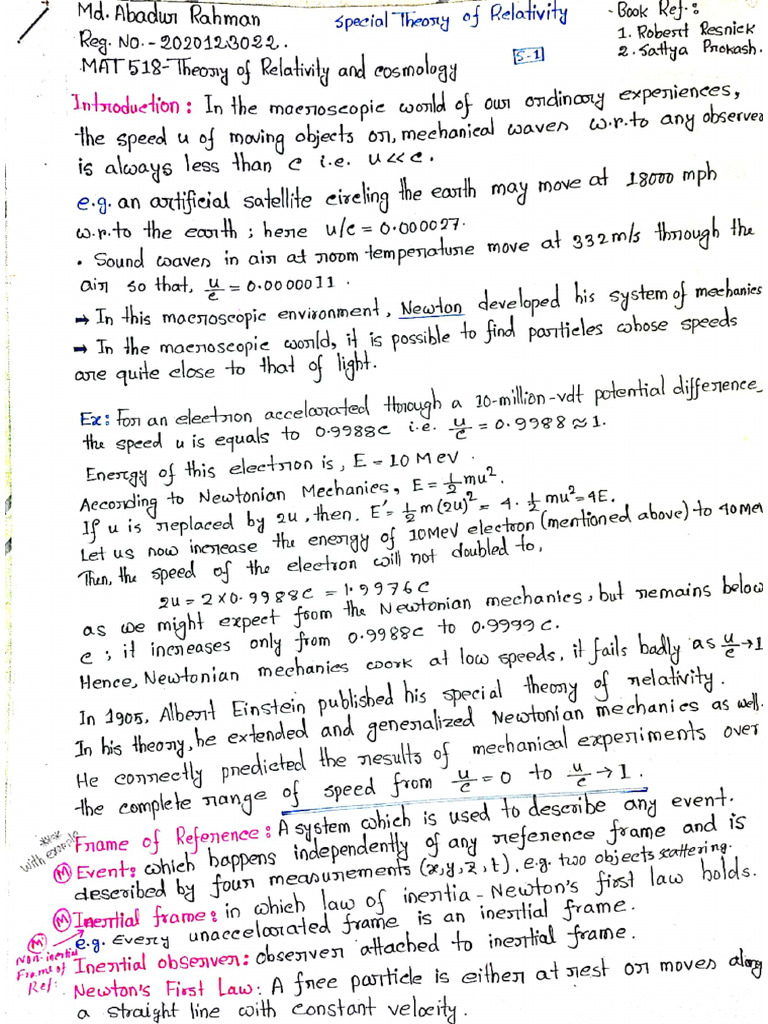 Md. Abadur Rahman
Reg. No.- 2020123022.
MAT 518-Theory of Relativity and cosmology
Special Theory of Relativity
S-1
- Book Ref.:
1. Robert Resnick
2. Sattya Prokash.
Introduction: In the macroscopic world of our ordinary experiences,
the speed u of moving objects or, mechanical waves w.r.to any observer
is always less than c i.e. u<<c.
e.g. an artificial satellite circling the earth may move at 18000 mph
w.r.to the earth; here u/c = 0.000027.
• Sound waves in air at room temperature move at 332 m/s through the
air so that, u/c = 0.0000011.
→ In this macroscopic environment, Newton developed his system of mechanics
→ In the macroscopic world, it is possible to find particles whose speeds
are quite close to that of light.
Ex: For an electron accelarated through a 10-million-vdt potential difference
the speed u is equals to 0.9988c i.e. u/c = 0.9988 ≈ 1.
Energy of this electron is, E = 10 Mev.
According to Newtonian Mechanics, E = 1/2 mu².
If u is replaced by 2u, then. E' = 1/2 m (2u)² = 4 · 1/2 mu² = 4E.
Let us now increase the energy of 10 Mev electron (mentioned above) to 40 Mev
Then, the speed of the electron will not doubled to,
2u = 2 × 0.9988c = 1.9976c
as we might expect from the Newtonian mechanics, but remains below
c; it increases only from 0.9988c to 0.9999c.
Hence, Newtonian mechanics work at low speeds, it fails badly as u/c → 1
In 1905, Albert Einstein published his special theory of relativity.
In his theory, he extended and generalized Newtonian mechanics as well.
He correctly predicted the results of mechanical experiments over
the complete range of speed from u/c = 0 to u/c → 1.
with example
Frame of Reference: A system which is used to describe any event.
(M) Event: which happens independently of any reference frame and is
described by four measurements (x,y,z,t), e.g. two objects scattering.
(M) Inertial frame: in which law of inertia - Newton's first law holds.
e.g. Every unaccelarated frame is an inertial frame.
(M)
Non-inertial
Frame of
Ref:
Inertial observer: observer attached to inertial frame.
Newton's First Law: A free particle is either at rest or moves along
a straight line with constant velocity.